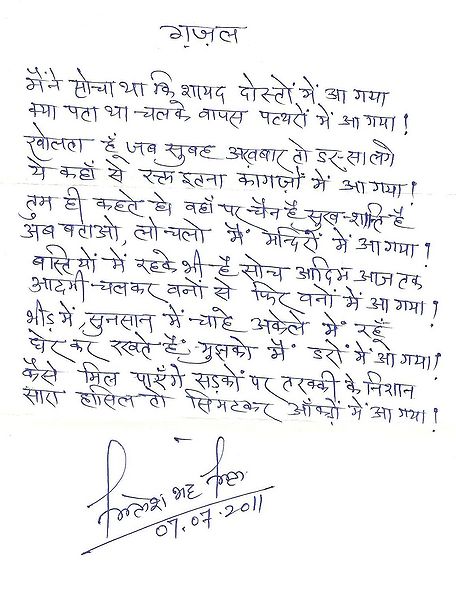 ग़ज़ल
मैंने सोचा था कि शायद दोस्तों में आ गया
क्या पता था चलके वापस पत्थरों में आ गया!
खोलता हूँ जब सुबह अख़बार तो डर-सा लगे
ये कहाँ से रक्त इतना काग़ज़ों में आ गया!
तुम ही कहते थे वहाँ पर चैन है सुख-शान्ति है
अब बताओ, लो चलो मैं मन्दिरों में आ गया!
बस्तियों में रहके भी है सोच आदिम आज तक
आदमी चलकर वनों से फिर वनों में आ गया!
भीड़ में, सुनसान में चाहे अकेले में रहूँ
घेर कर रखते हैं मुझको मैं डरों में आ गया!
कैसे मिल पाएँगे सड़कों पर तरक्की के निशान
सारा हासिल तो सिमटकर आँकड़ों में आ गया!
07.07.2011